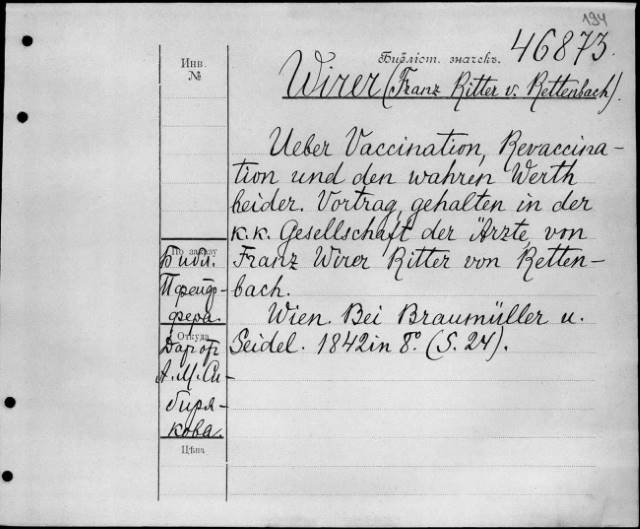 194
46873.
Инв.
№
Библіот. значекъ.
Wirer (Franz Ritter v. Rettenbach).
Ueber Vaccination, Revaccina-
tion und den wahren Werth
beider. Vortrag, gehalten in der
k. k. Gesellschaft der Ärzte, von
Franz Wirer Ritter von Retten-
bach.
Wien. Bei Braumüller u.
Seidel. 1842 in 8° (S. 24).
По заказу
Библ.
Пфейф-
фера.
Откуда
Дар от
А. М. Си-
биря-
кова.
Цѣна